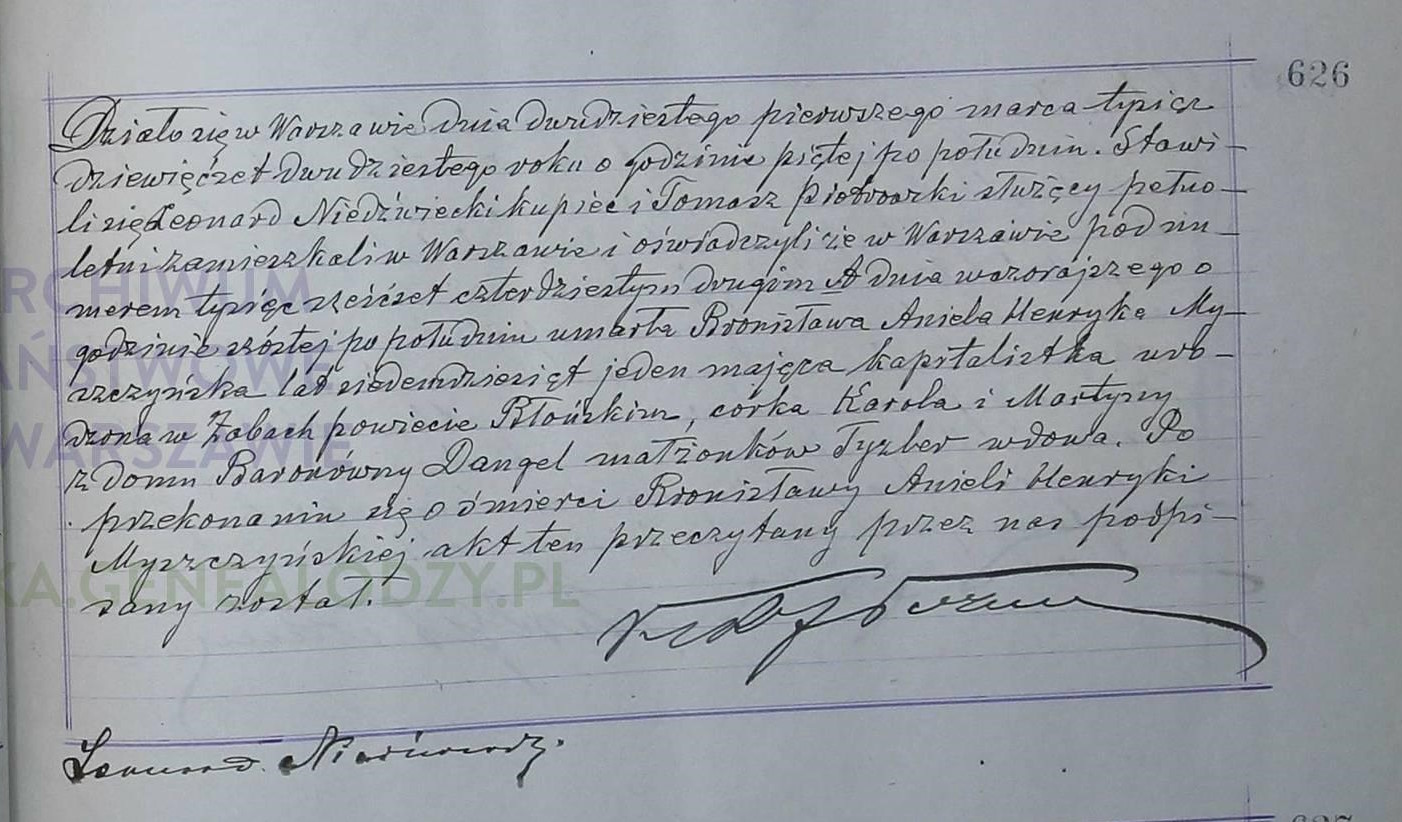 626
Działo się w Warszawie dnia dwudziestego pierwszego marca tysiąc
dziewięćset dwudziestego roku o godzinie piątej po południu. Stawi-
li się Leonard Niedźwiecki kupiec i Tomasz Piotrowski służący pełno-
letni zamieszkali w Warszawie i oświadczyli że w Warszawie pod nu-
merem tysiąc sześćset czterdziestym drugim A dnia wczorajszego o
godzinie szóstej po południu umarła Bronisława Aniela Henryka My-
szczyńska lat siedemdziesiąt jeden mająca kapitalistka uro-
dzona w Żabach powiecie Błońskim, córka Karola i Martyny
z domu Baronówny Dangel małżonków Tyzler wdowa. Po
przekonaniu się o śmierci Bronisławy Anieli Henryki
Myszczyńskiej akt ten przeczytany przez nas podpi-
sany został.
Leonard
ARCHIWUM
PAŃSTWOWE
WARSZAWIE
KA.GENEALODZY.PL